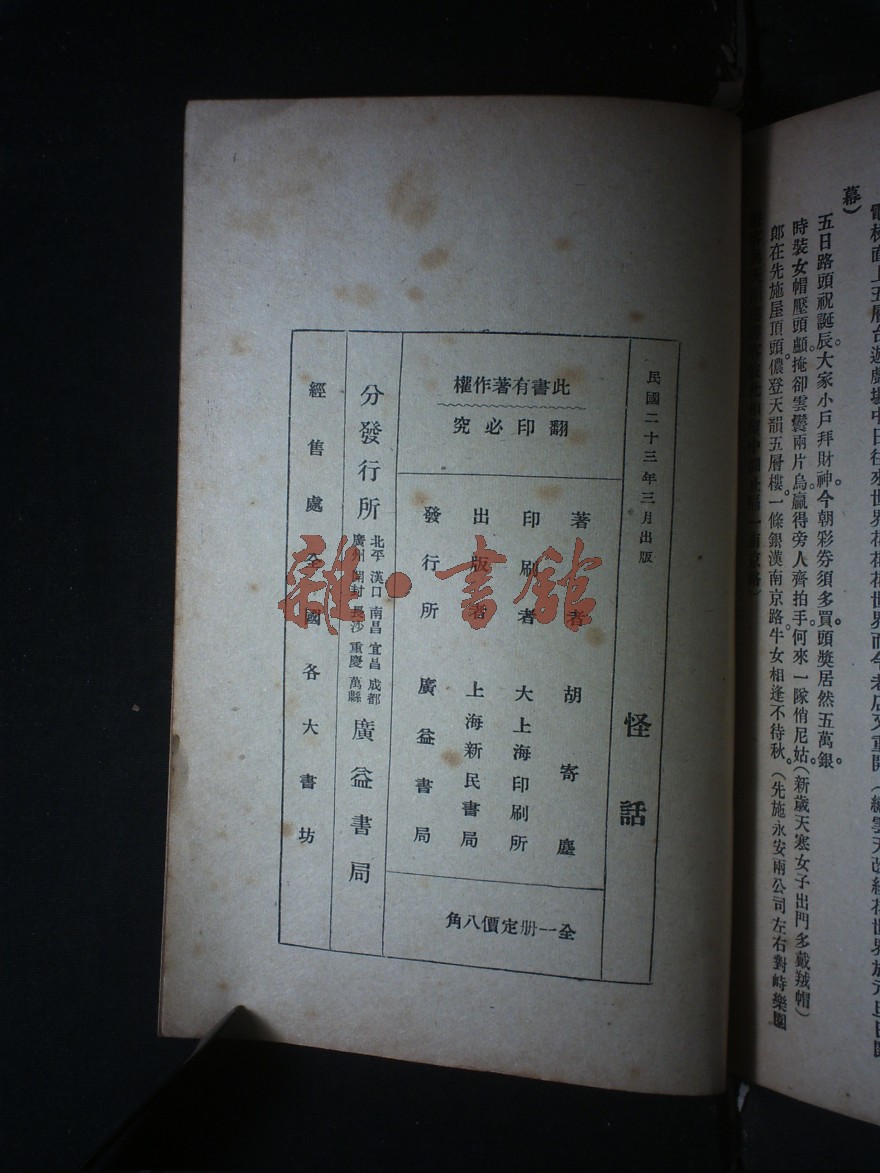 幕)
五日路頭祝誕辰。大家小戶拜財神。今朝彩券須多買。頭獎居然五萬銀。
時裝女帽壓頭顱。掩卻雲鬟兩片烏。贏得旁人齊拍手。何來一隊俏尼姑。(新歲天寒女子出門多戴羢帽)
郎在先施屋頂頭。儂登天韻五層樓。一條銀漢南京路。牛女相逢不待秋。(先施永安兩公司左右對峙樂園
民國二十三年三月出版
怪話
此書有著作權
翻印必究
著者 胡寄塵
印刷者 大上海印刷所
出版者 上海新民書局
發行所 廣益書局
全一册定價八角
分發行所 北平 漢口 南昌 宜昌 成都
廣州 開封 長沙 重慶 萬縣 廣益書局
經售處全國各大書坊
雜·書館